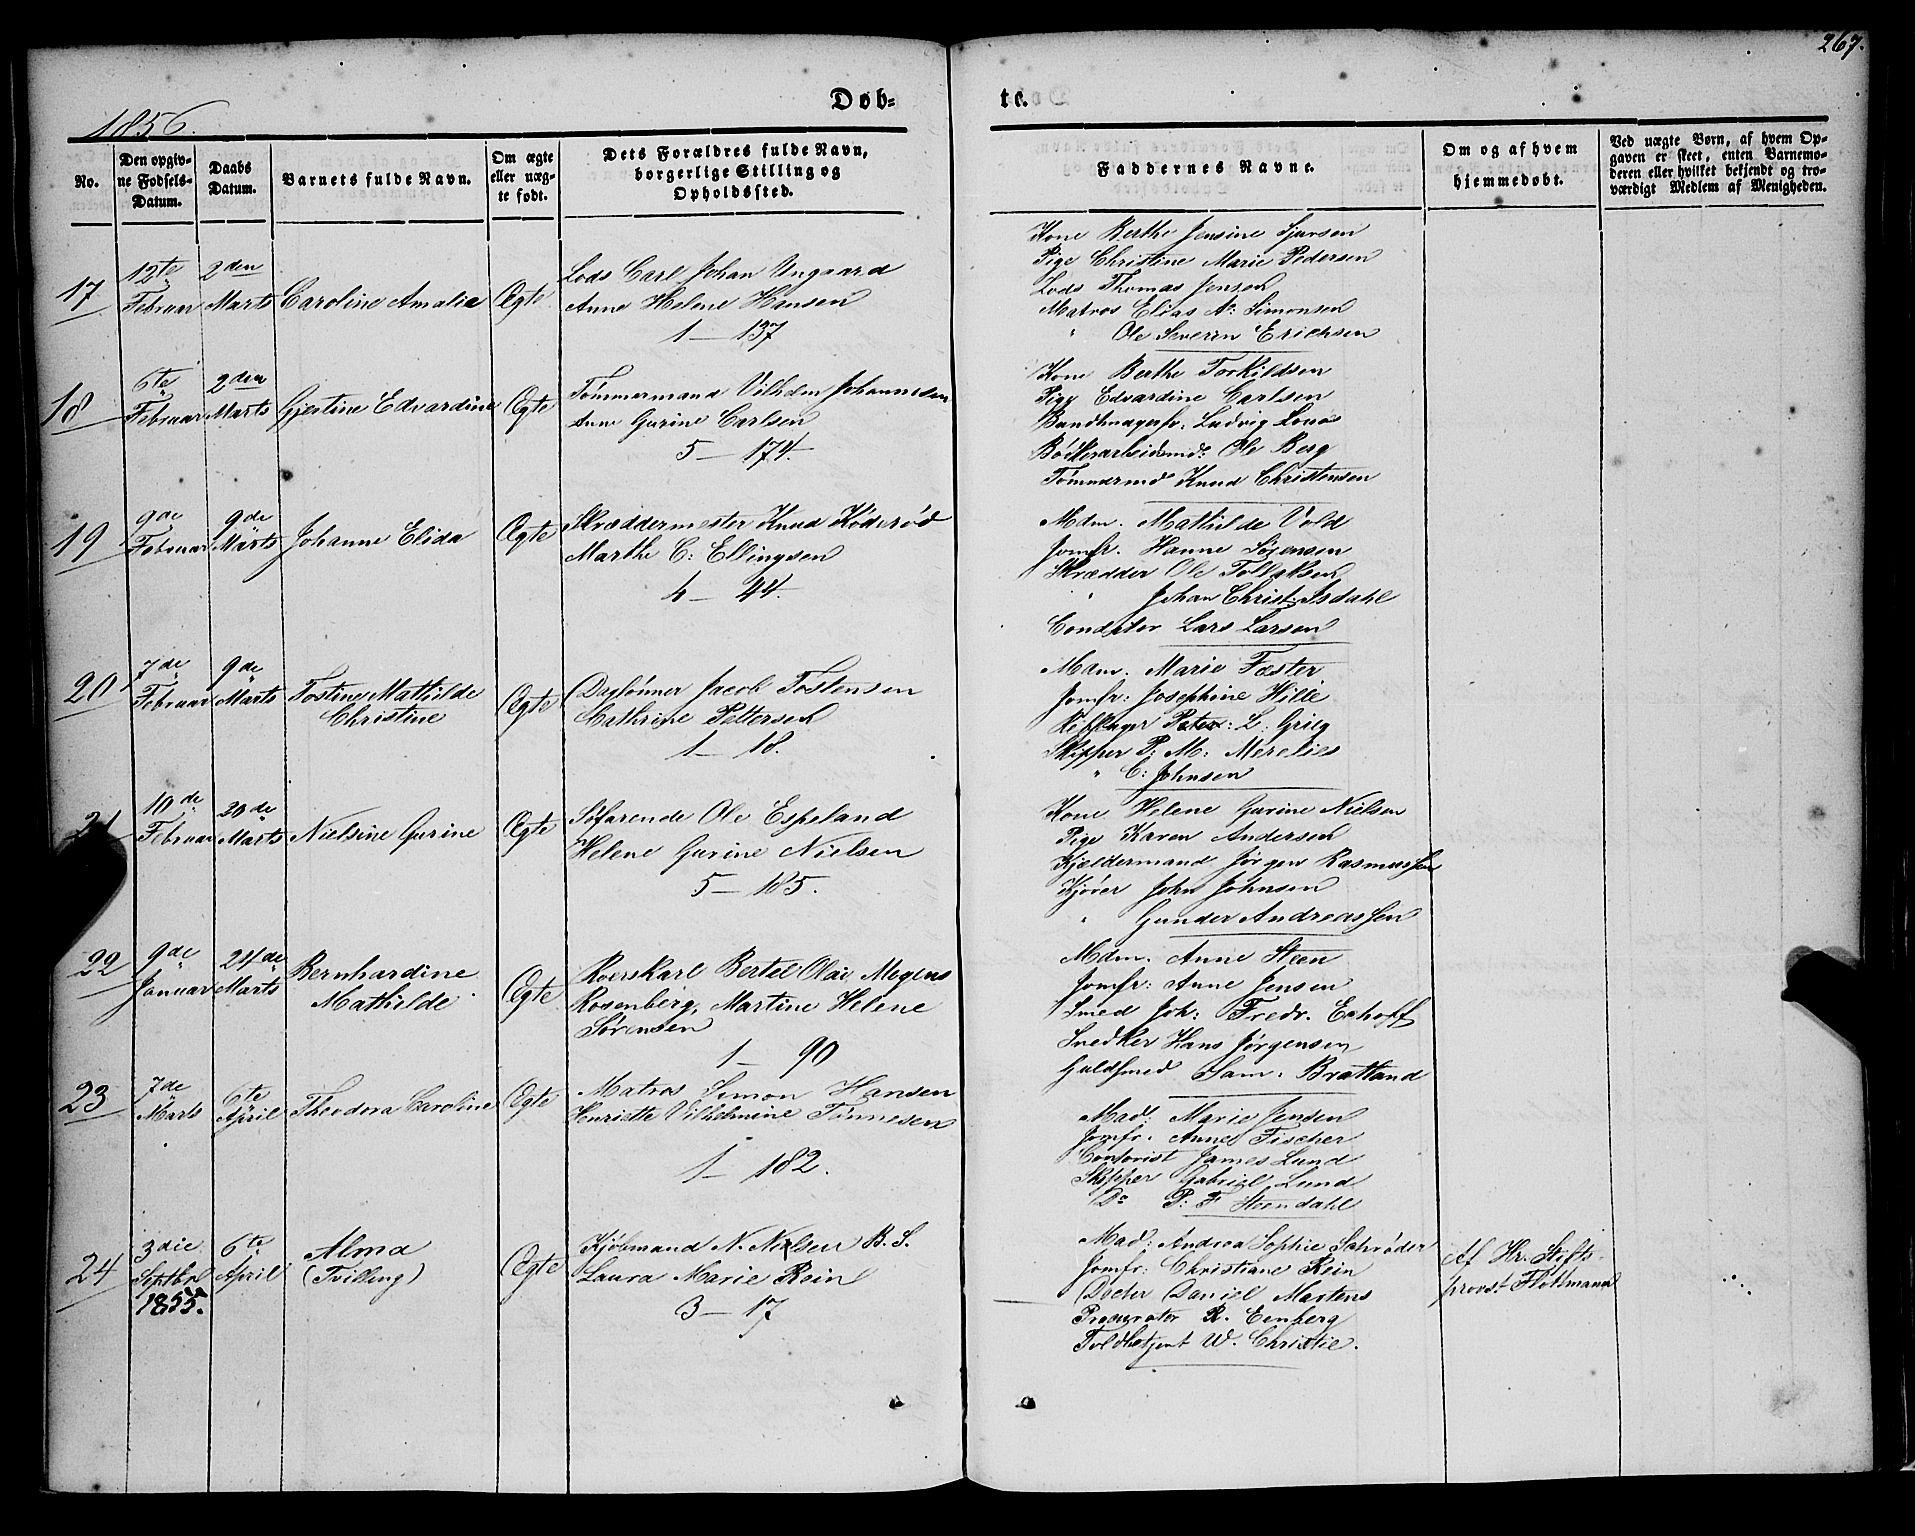 267.
1856.
Døb-
te.
No.
Den opgiv-
ne Fødsels-
Datum.
Daabs
Datum.
Barnets fulde Navn.
Om ægte
eller uæg-
te født.
Dets Forældres fulde Navn,
borgerlige Stilling og
Opholdssted.
Faddernes Navne.
Om og af hvem
hjemmedøbt.
Ved uægte Børn, af hvem Op-
gaven er skeet, enten Barnemo-
deren eller hvilket bekjendt og tro-
værdigt Medlem af Menigheden.
17
12te
Februar
2den
Marts
Caroline Amalie
Ægte
Lods Carl Johan Ungaard
Anne Helene Hansen
1 — 137
Kone Berthe Jensine Sjursen
Pige Christine Marie Pedersen
Lods Thomas Jensen
Matros Elias A: Simonsen
" Ole Severin Erichsen
18
6te
Februar
2den
Marts
Gjestine Edvardine
Ægte
Tømmermand Vilhelm Johannesen
Anne Gurine Carlsen
5 — 174.
Kone Berthe Torkildsen
Pige Edvardine Carlsen
Bundtmagersv: Ludvig
Bødkerarbeidsmd: Ole Berg
Tømmermd Knud Christensen
19
9de
Februar
9de
Marts
Johanne Elida
Ægte
Skræddermester Knud Køderød
Marthe C: Ellingsen
4 — 44.
Mdm. Mathilde Vold
Jomfr. Hanne Sørensen
Skrædder Ole Tollaksen
" Johan Christ. Isdahl
Conditor Lars Larsen
20
7de
Februar
9de
Marts
Tostine Mathilde
Christine
Ægte
Daglønner Jacob Tostensen
Cathrine Pettersen
1 — 18.
Mdm. Marie Fæster
Jomfr: Josephine Hille
Rebslager Peter: L: Grieg
Skipper P: M: Merelies
" C: Johnsen
21
10de
Februar
20de
Marts
Nielsine Gurine
Ægte
Søfarende Ole Espeland
Helene Gurine Nielsen
5 — 185.
Kone Helene Gurine Nielsen
Pige Karen Andersen
Kjeldermand Jørgen Rasmussen
Kjører John Johnsen
" Gunder Andreassen
22
9de
Januar
24de
Marts
Bernhardine
Mathilde
Ægte
Roerskarl Bertel Olai Mogens
Rosenberg, Martine Helene
Sørensen
1 — 90
Mdm. Anne Steen
Jomfr: Anne Jensen
Smed Joh: Fredr. Echoff
Snedker Hans Jørgensen
Guldsmed Sam. Bratland
23
7de
Marts
6te
April
Theodora Caroline
Ægte
Matros Simon Hansen
Henriette Vilhelmine Tønnesen
1 — 182.
Mad: Marie Jensen
Jomfr. Anne Fischer
Contorist James Lund
Skipper Gabriel Lund
Do P: F Steendahl
24
3die
Septbr
1855.
6te
April
Alma
(Tvilling)
Ægte
Kjøbmand N. Nielsen B. S.
Laura Marie Rein
3 — 17
Mad: Andrea Sophie Schrøder
Jomfr: Christiane Rein
Doctor Daniel Martens
Procurator R. Eenberg
Toldbetjent W. Christie.
Af Hr. Stifts-
provst Flottmann